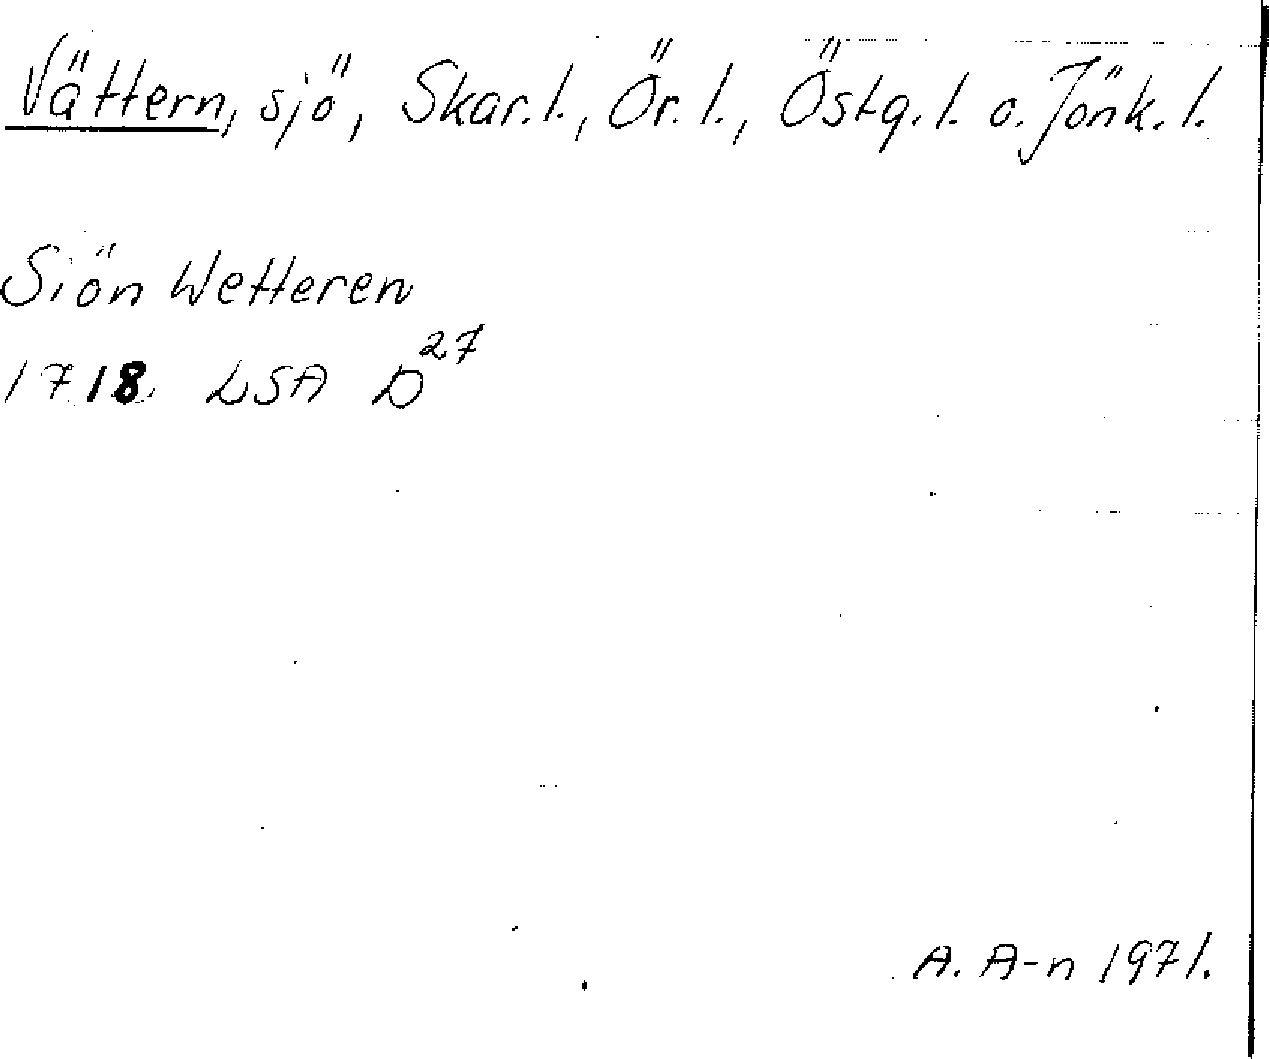 Vättern, sjö, Skar. l., Ör. l., Östg. l. o. Jönk. l.
Siön Wetteren
1718 LSA D27
A. A-n 1971.